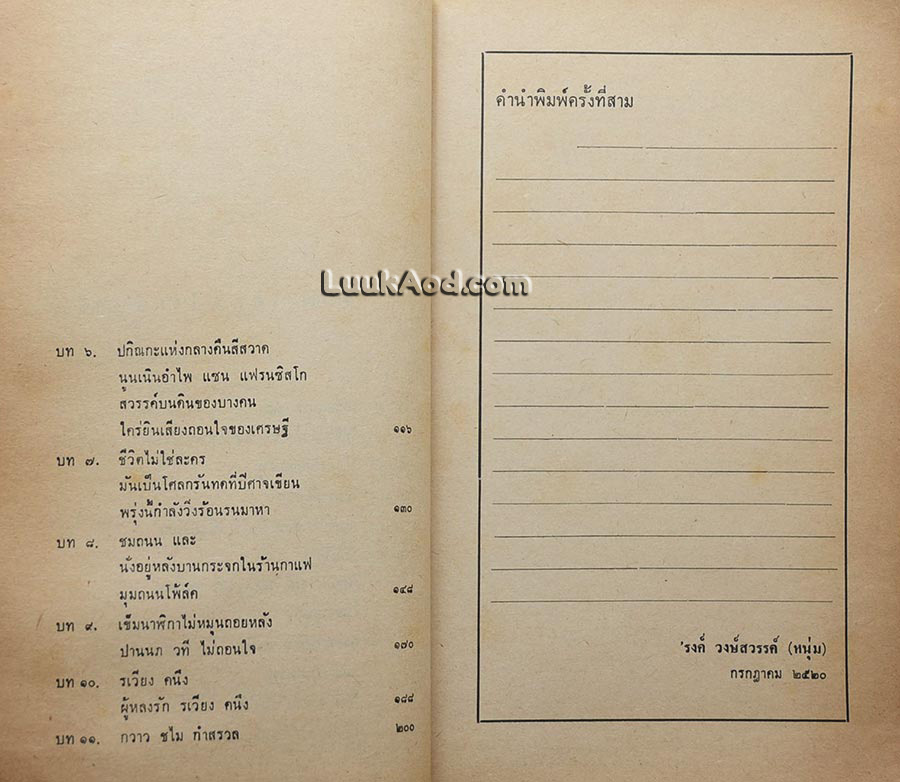 บท ๖. ปกิณกะแห่งกลางคืนสีสวาด
นูนเนินอำไพ แซน แฟรนซิสโก
สวรรค์บนดินของบางคน
ใคร่ยินเสียงถอนใจของเศรษฐี ๑๑๖
บท ๗. ชีวิตไม่ใช่ละคร
มันเป็นโศลกรันทดที่ปีศาจเขียน
พรุ่งนี้กำลังวิ่งร้อนรนมาหา ๑๓๐
บท ๘. ชมถนน และ
นั่งอยู่หลังบานกระจกในร้านกาแฟ
มุมถนนโพ้ล์ค ๑๔๘
บท ๙. เข็มนาฬิกาไม่หมุนถอยหลัง
ปานนภ วที ไม่ถอนใจ ๑๗๐
บท ๑๐. รเวียง คนึง
ผู้หลงรัก รเวียง คนึง ๑๘๘
บท ๑๑. กวาว ชไม กำสรวล ๒๐๐
คำนำพิมพ์ครั้งที่สาม
'รงค์ วงษ์สวรรค์ (หนุ่ม)
กรกฎาคม ๒๕๒๐
LuukAod.com